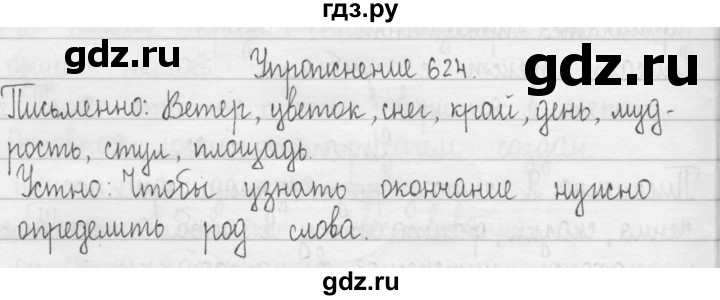 гдз.ру
gdz.ru
gdz.ru
Упражнение 624.
Письменно: Ветер, цветок, снег, край, день, муд-
рость, стул, площадь.
Устно: Чтобы узнать окончание нужно
определить род слова.
gdz.ru